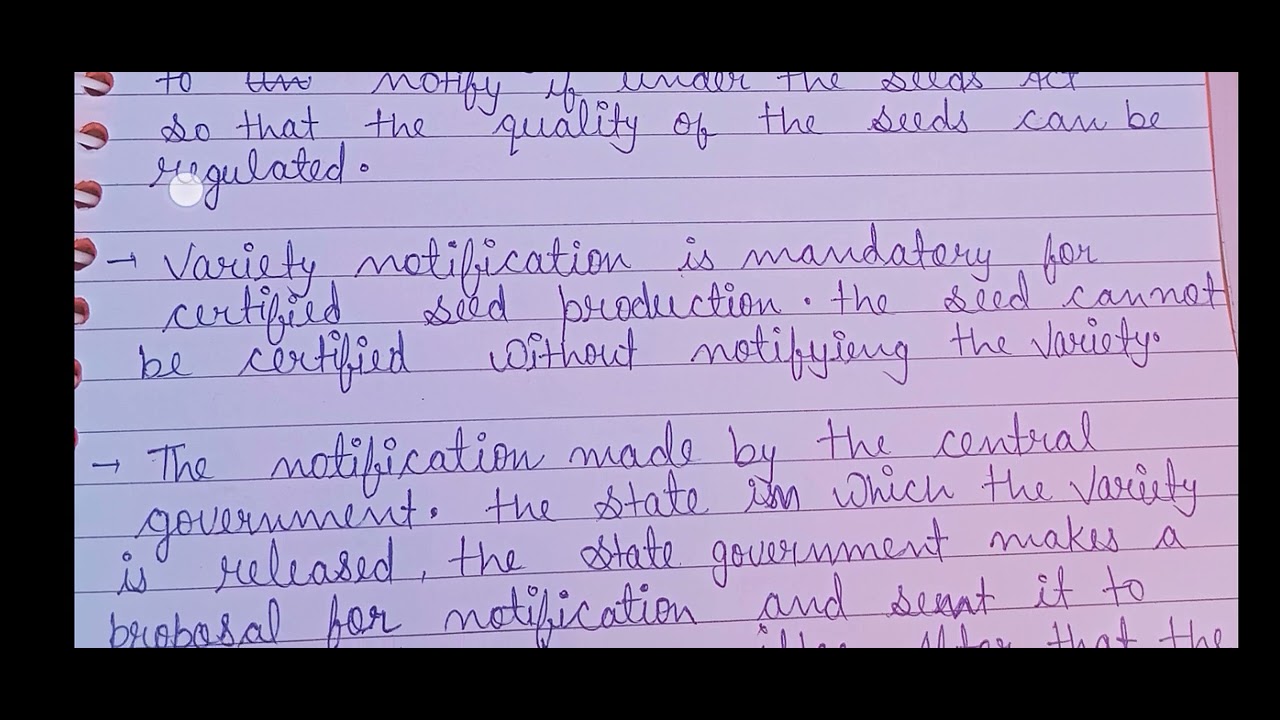 to notify it under the seeds Act
so that the quality of the seeds can be
regulated.
→ Variety notification is mandatory for
certified seed production. the seed cannot
be certified without notifyieng the variety.
→ The notification made by the central
government. the state in which the variety
is released, the state government makes a
proposal for notification and sent it to
After that the